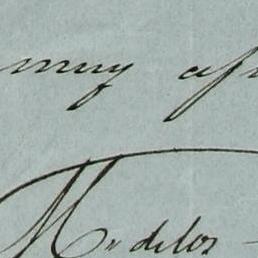 muy af
M. de los